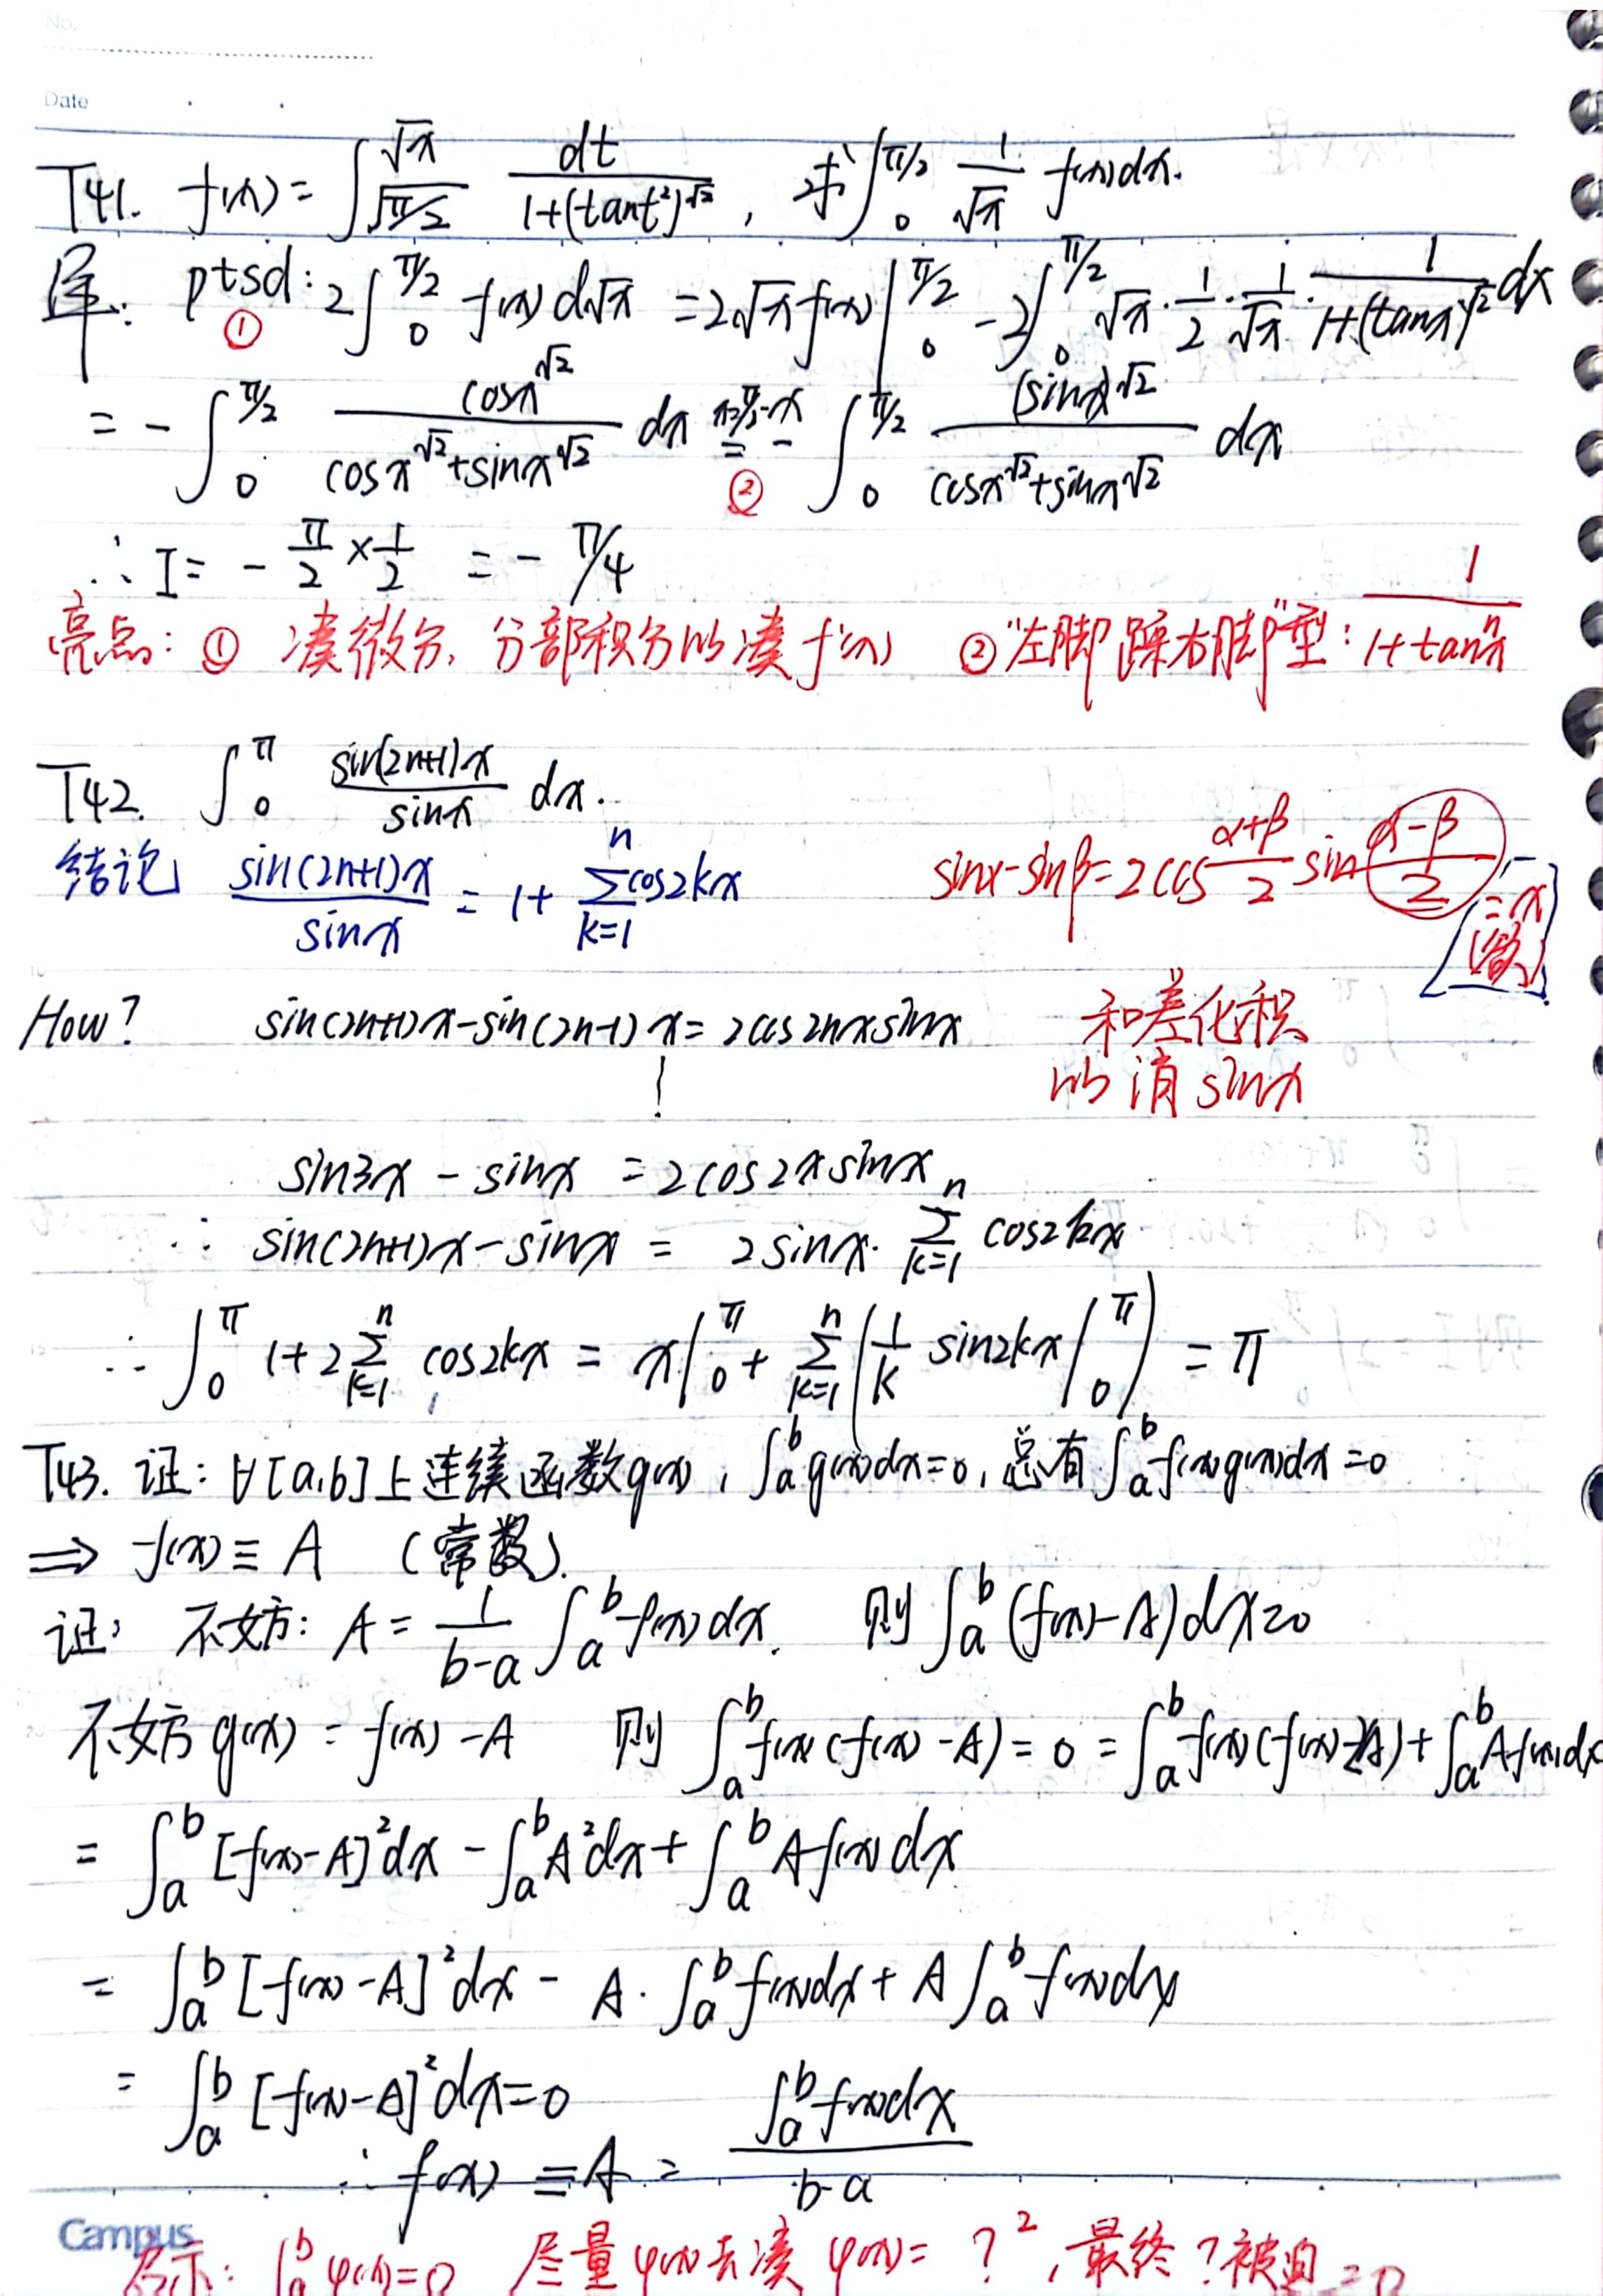 No.
Date
T41. f(x) = ∫_{√(π/2)}^{√x} dt / (1+(tant²)^{√2}), 求 ∫_0^{π/2} 1/√x f(x)dx.
解: ptsd: 2∫_0^{π/2} f(x) d√x = 2√x f(x) |_0^{π/2} - 2∫_0^{π/2} √x · 1/2 · 1/√x · 1/(1+(tanx)^{√2}) dx
①
= - ∫_0^{π/2} cosx^{√2} / (cosx^{√2}+sinx^{√2}) dx = - ∫_0^{π/2} (sinx)^{√2} / (cosx^{√2}+sinx^{√2}) dx
②
∴ I = - π/2 × 1/2 = - π/4
亮点: ① 凑微分, 分部积分以凑 f'(x) ② "左脚踩右脚"型: 1/(1+tanⁿx)
T42. ∫_0^π sin(2n+1)x / sinx dx.
结论 sin(2n+1)x / sinx = 1+ Σ_{k=1}^n cos2kx
sinα-sinβ=2cos (α+β)/2 sin (α-β)/2
=x
How? sin(2n+1)x-sin(2n-1)x = 2cos2nxsinx
和差化积
以消sinx
sin3x - sinx = 2cos2xsinx
∴ sin(2n+1)x-sinx = 2sinx· Σ_{k=1}^n cos2kx
∴ ∫_0^π 1+2Σ_{k=1}^n cos2kx = x|_0^π + Σ_{k=1}^n (1/k sin2kx |_0^π) = π
T43. 证: ∀[a,b]上连续函数g(x), ∫_a^b g(x)dx=0, 总有∫_a^b f(x)g(x)dx=0
⇒ f(x) ≡ A (常数).
证: 不妨: A = 1/(b-a) ∫_a^b f(x)dx. 则 ∫_a^b (f(x)-A)dx=0
不妨 g(x) = f(x) -A 则 ∫_a^b f(x)(f(x)-A) = 0 = ∫_a^b f(x)(f(x)-2A) + ∫_a^b Af(x)dx
= ∫_a^b [f(x)-A]²dx - ∫_a^b A²dx + ∫_a^b Af(x)dx
= ∫_a^b [f(x)-A]²dx - A·∫_a^b f(x)dx + A∫_a^b f(x)dx
= ∫_a^b [f(x)-A]²dx=0
∴ f(x) ≡ A = ∫_a^b f(x)dx / (b-a)
Campus
启示: ∫_a^b φ(x)=0 尽量φ(x)去凑 φ(x)= ?², 最终?被迫=0